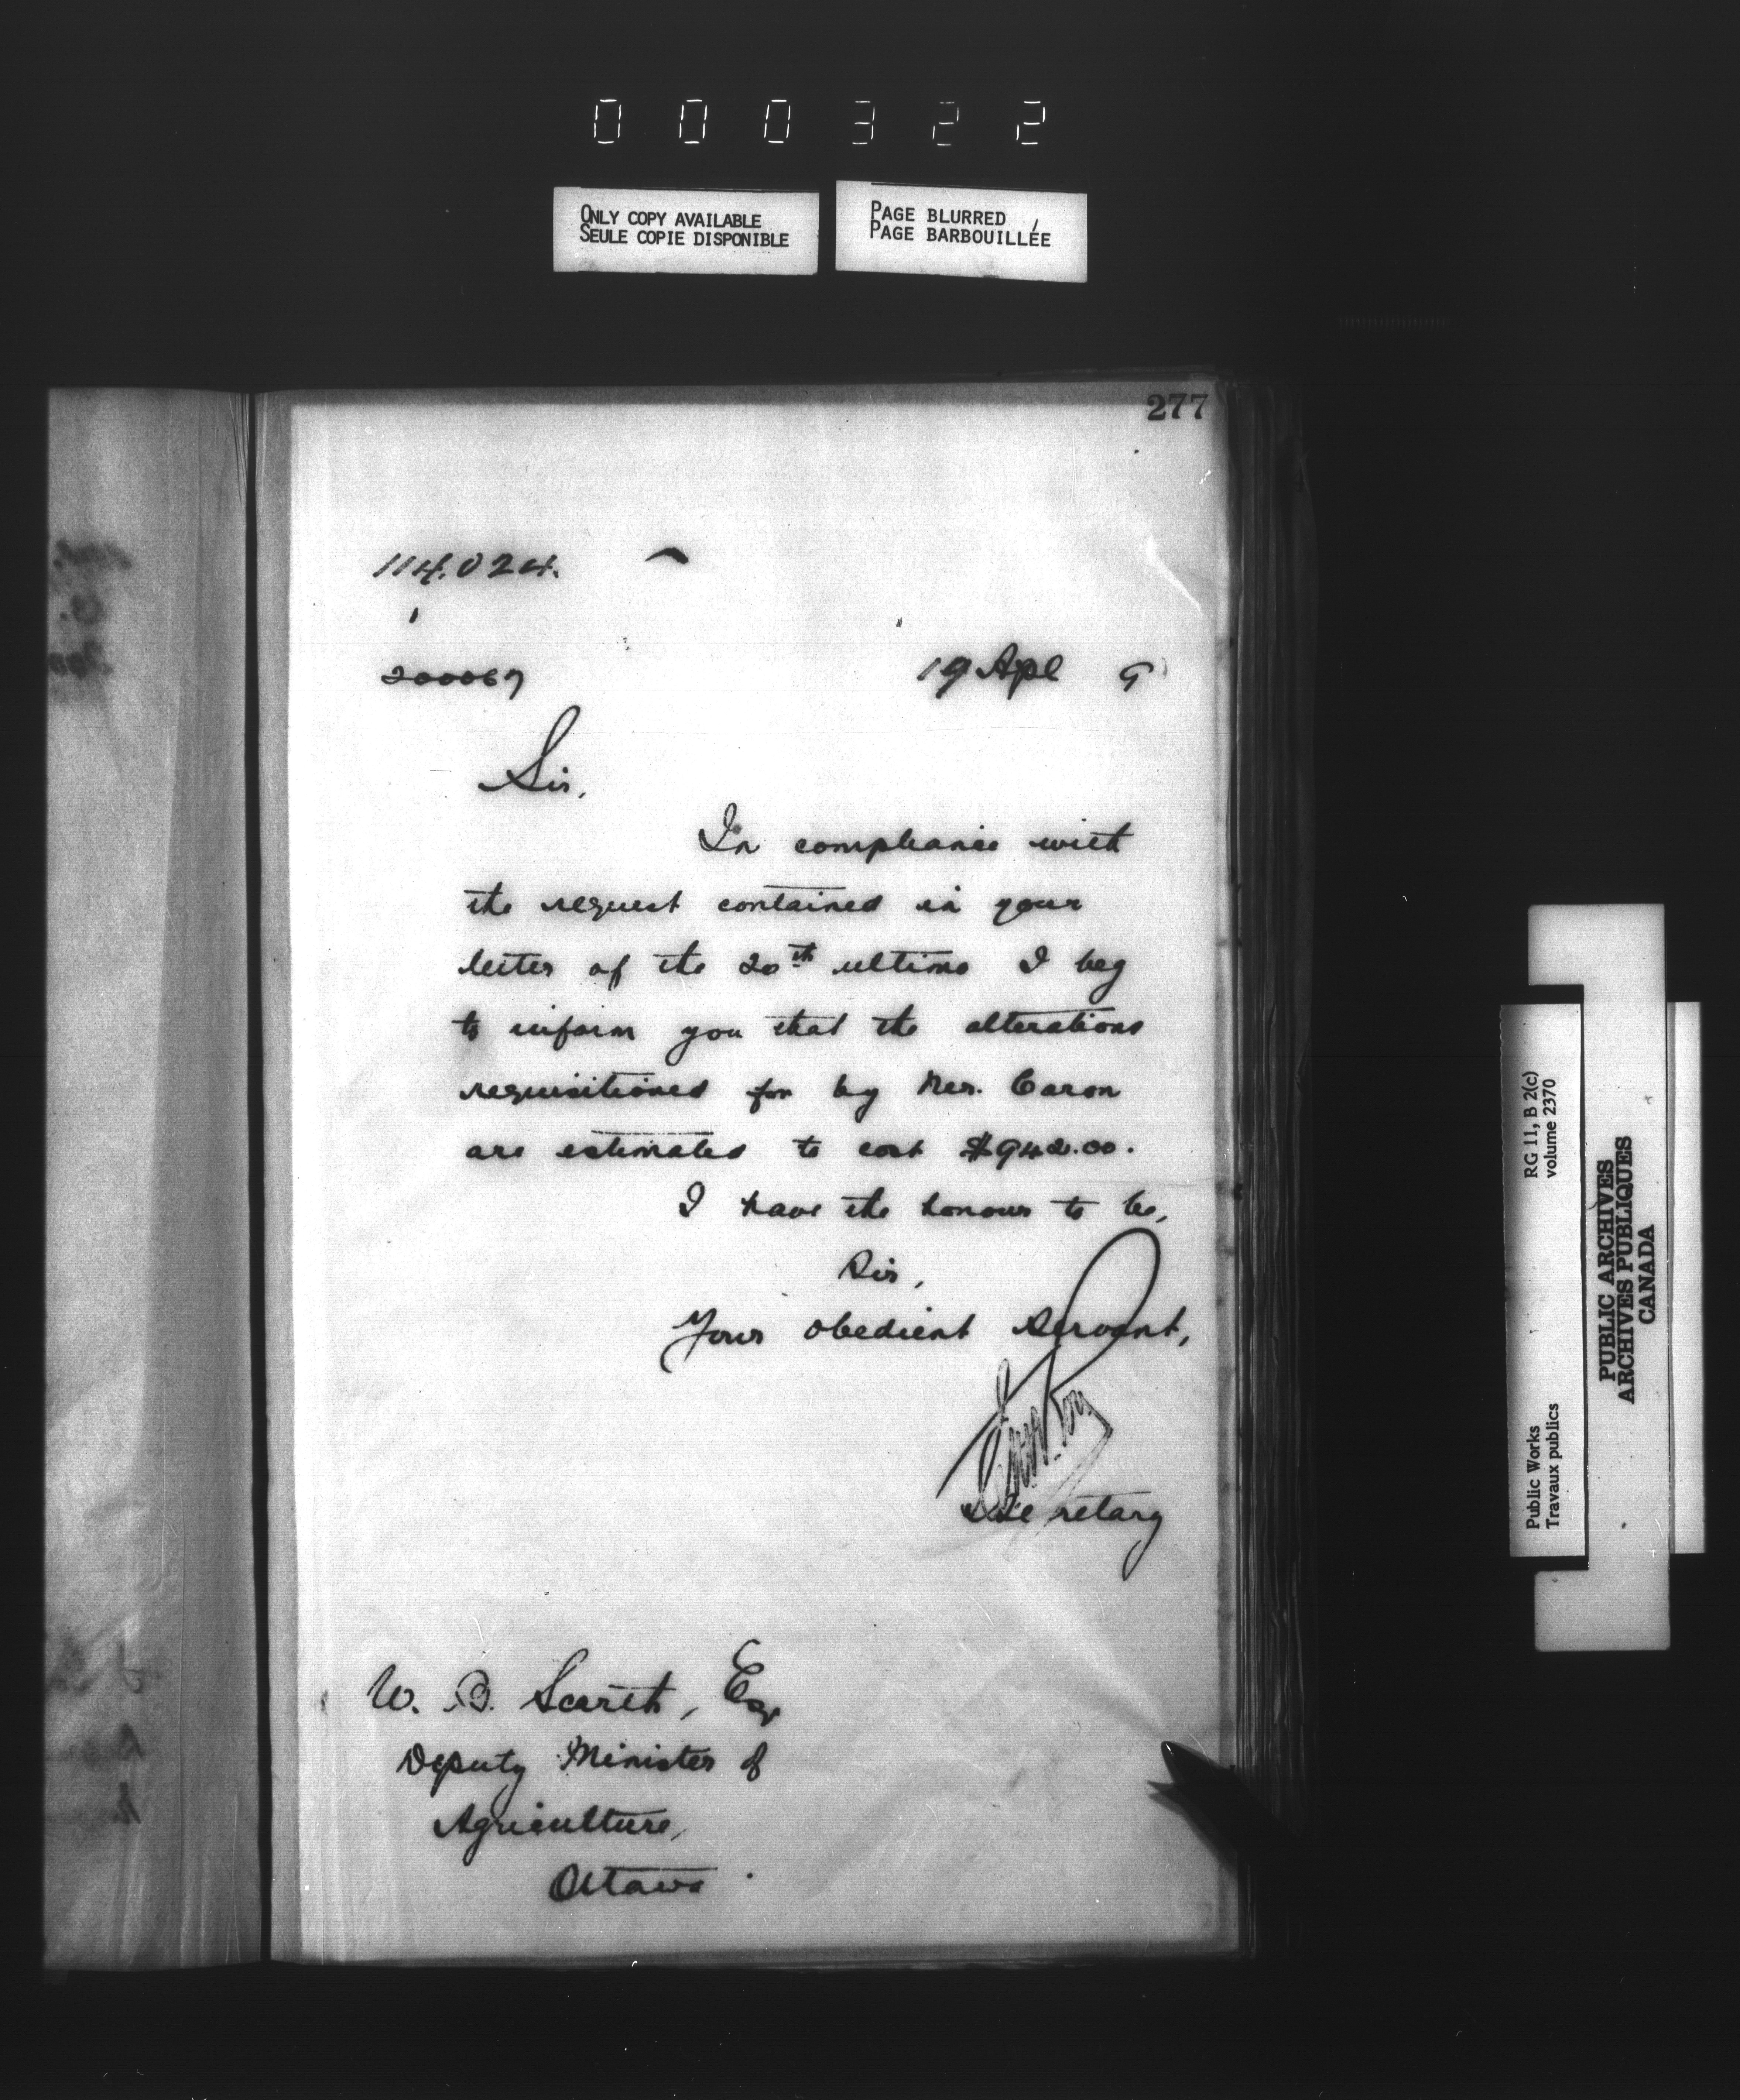 000322
ONLY COPY AVAILABLE
SEULE COPIE DISPONIBLE
PAGE BLURRED
PAGE BARBOUILLÉE
277
114.024.
200067
19 Apl 9
Sir,
In compliance with
the request contained in your
letter of the 20th ultimo I beg
to inform you that the alterations
requisitioned for by Mr. Caron
are estimated to cost $942.00.
I have the honour to be,
Sir,
Your obedient servant,
Roy
Secretary
W. B. Scarth, Esq
Deputy Minister of
Agriculture,
Ottawa.
RG 11, B 2(c)
volume 2370
Public Works
Travaux publics
PUBLIC ARCHIVES
ARCHIVES PUBLIQUES
CANADA